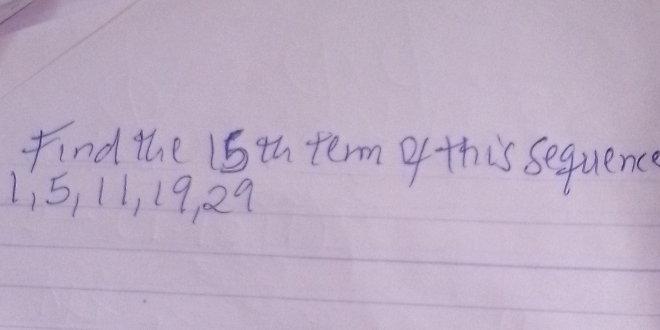 Find the 15th term of this sequence
1, 5, 11, 19, 29